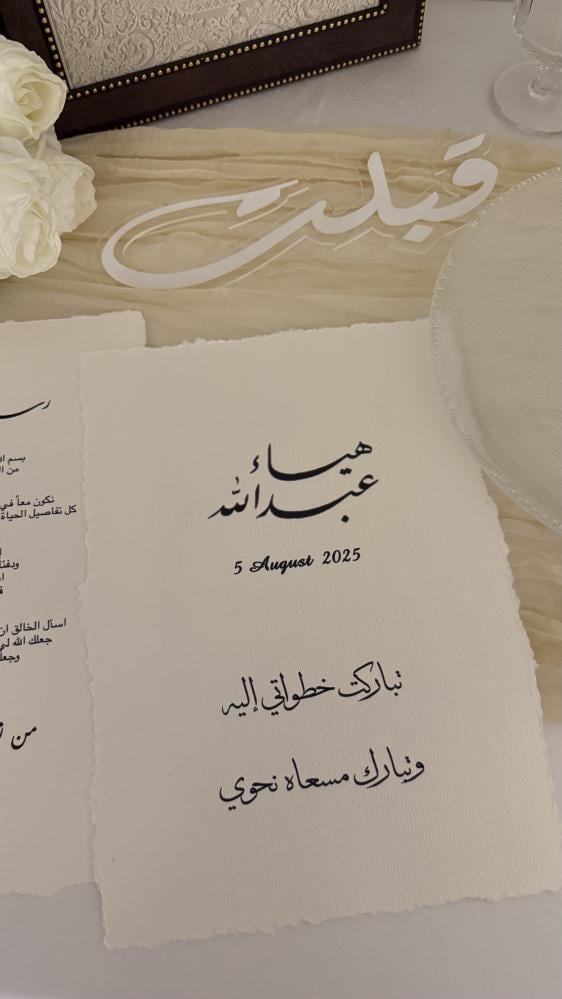 قبلت
هيــاء
عبدالله
5 August 2025
تباركت خطواتي إليه
وتبارك مسعاه نحوي
بسم
من
نكون معاً في
كل تفاصيل الحياة
اسأل الخالق ان
جعلك الله لي
من